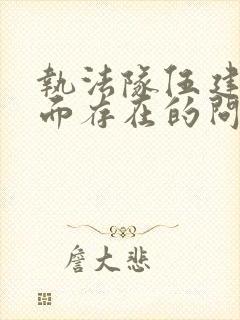 執法隊伍建
而存在的問
詹大悲